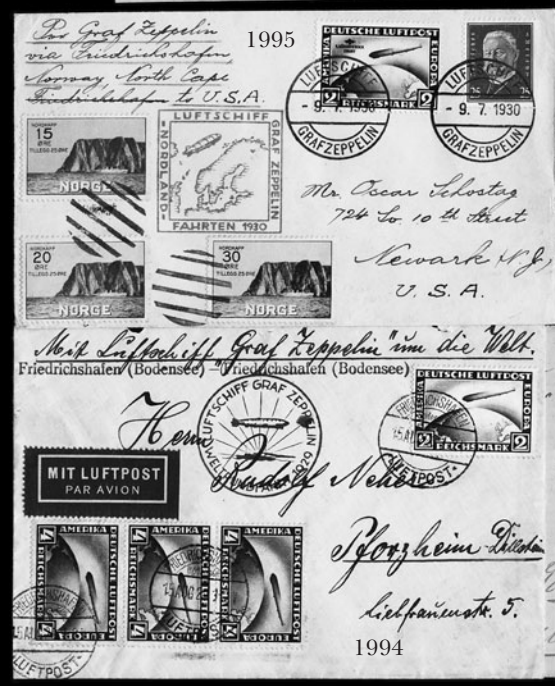 Par Graf Zeppelin
via Friedrichshafen,
Norway, North Cape
Friedrichshafen to U.S.A.
1995
DEUTSCHE LUFTPOST
EUROPA
2 REICHSMARK 2
25 25
LUFTSCHIFF
- 9. 7. 1930
GRAF ZEPPELIN
LUFTSCHIFF
- 9. 7. 1930
GRAF ZEPPELIN
NORDKAPP
15
ØRE
TILLEGG 25 ØRE
NORGE
LUFTSCHIFF
GRAF ZEPPELIN
-NORDLAND-
FAHRTEN 1930
Mr. Oscar Schostag
724 So. 10th Street
Newark N.J,
U.S.A.
NORDKAPP
20
ØRE
TILLEGG 25 ØRE
NORGE
NORDKAPP
30
ØRE
TILLEGG 25 ØRE
NORGE
Mit Luftschiff "Graf Zeppelin" um die Welt.
Friedrichshafen (Bodensee) – Friedrichshafen (Bodensee)
LUFTSCHIFF GRAF ZEPPELIN
1929
DEUTSCHE LUFTPOST
AMERIKA
EUROPA
2 REICHSMARK 2
FRIEDRICHSHAFEN
LUFTPOST
Herrn
Rudolf
MIT LUFTPOST
PAR AVION
Pforzheim-Dillstein
Liebfrauenstr. 5.
4 AMERIKA
DEUTSCHE LUFTPOST
REICHSMARK
EUROPA 4
4 AMERIKA
DEUTSCHE LUFTPOST
REICHSMARK
EUROPA 4
4 AMERIKA
DEUTSCHE LUFTPOST
REICHSMARK
EUROPA 4
LUFTPOST
1994